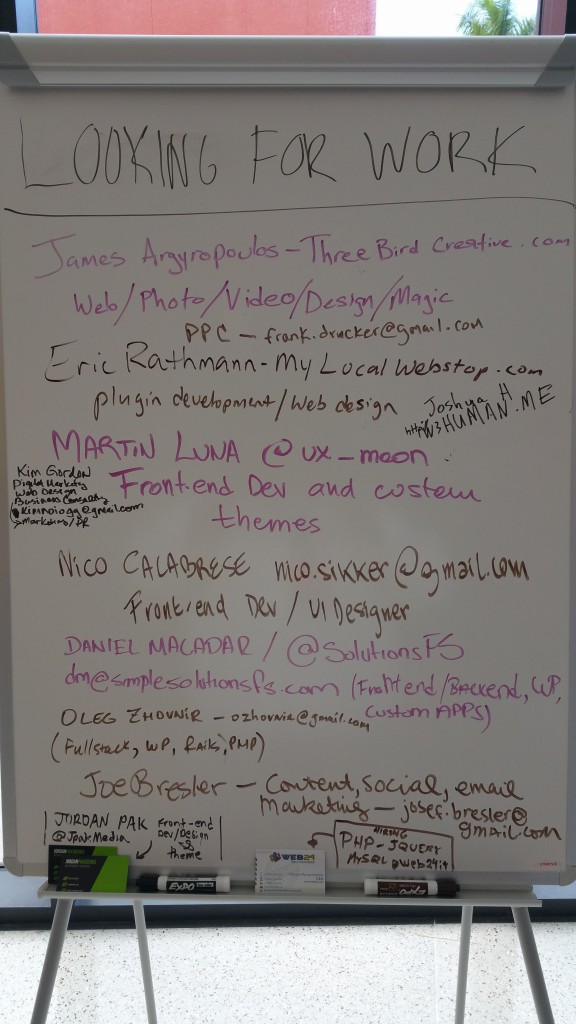 LOOKING FOR WORK
James Argyropoulos - Three Bird Creative.com
Web/Photo/Video/Design/Magic
PPC - frank.drucker@gmail.com
Eric Rathmann - My Local Webstop.com
plugin development/Web design
Joshua H
http://W3HUMAN.ME
MARTIN LUNA @ux_moon
Front-end Dev and custom
themes
Kim Gordon
Digital Marketing
Web Design
Business Consulting
Marketing/PR
NICO CALABRESE nico.sikker@gmail.com
Front-end Dev / UI Designer
DANIEL MALADAR / @SolutionsFS
dm@simplesolutionsfs.com (Front end/Backend, WP,
Custom APPS)
OLEG ZHOVNIR - ozhovnir@gmail.com
(Fullstack, WP, Rails, PHP)
JOE Bresler - Content, social, email
Marketing - josef.bresler@
gmail.com
JORDAN PAK
@JpakMedia
Front-end
Dev/Design
&
theme
HIRING
PHP - JQUERY
MySQL @web24it
WEB24
EXPO